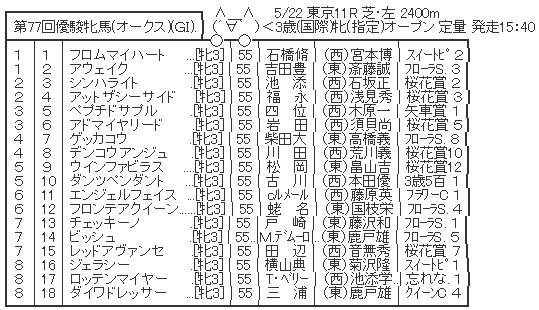 第77回優駿牝馬(オークス)(GI).
∧ ∧
(´∀`)
5/22 東京11R 芝・左 2400m
＜3歳(国際)牝(指定)オープン 定量 発走15:40
1│1│フロムマイハート …[牝3]│55│石橋脩│(西)宮本博│スイートピ 2
1│2│アウェイク …[牝3]│55│吉田豊│(東)斎藤誠│フローラS. 3
2│3│シンハライト …[牝3]│55│池　添│(西)石坂正│桜花賞 2
2│4│アットザシーサイド …[牝3]│55│福　永│(西)浅見秀│桜花賞 3
3│5│ペプチドサプル …[牝3]│55│四　位│(西)木原一│矢車賞 1
3│6│アドマイヤリード …[牝3]│55│岩　田│(西)須貝尚│桜花賞 5
4│7│ゲッカコウ …[牝3]│55│柴田大│(東)高橋義│フローラS. 8
4│8│デンコウアンジュ …[牝3]│55│川　田│(西)荒川義│桜花賞10
5│9│ウインファビラス …[牝3]│55│松　岡│(東)畠山吉│桜花賞12
5│10│ダンツペンダント …[牝3]│55│古　川│(西)本田優│3歳5百 1
6│11│エンジェルフェイス …[牝3]│55│cルメール│(西)藤原英│フラワーC 1
6│12│フロンテアクイーン‥…[牝3]│55│蛯　名│(東)国枝栄│フローラS. 4
7│13│チェッキーノ …[牝3]│55│戸　崎│(東)藤沢和│フローラS. 1
7│14│ビッシュ …[牝3]│55‥│M.デムーロ‥│(東)鹿戸雄│フローラS. 5
7│15│レッドアヴァンセ …[牝3]│55│田　辺│(西)音無秀│桜花賞 7
8│16│ジェラシー …[牝3]│55│横山典│(東)菊沢隆│スイートピ 1
8│17│ロッテンマイヤー …[牝3]│55│T・ベリー│(西)池添学‥│忘れな. 1
8│18│ダイワドレッサー …[牝3]│55│三　浦│(東)鹿戸雄│クイーンC 4